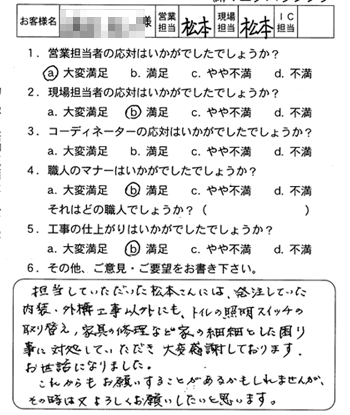 お客様名 様 営業担当 松本 現場担当 松本 IC担当
1．営業担当者の応対はいかがでしたでしょうか？
a. 大変満足 b. 満足 c. やや不満 d. 不満
2．現場担当者の応対はいかがでしたでしょうか？
a. 大変満足 b. 満足 c. やや不満 d. 不満
3．コーディネーターの応対はいかがでしたでしょうか？
a. 大変満足 b. 満足 c. やや不満 d. 不満
4．職人のマナーはいかがでしたでしょうか？
a. 大変満足 b. 満足 c. やや不満 d. 不満
それはどの職人でしょうか？（ ）
5．工事の仕上がりはいかがでしたでしょうか？
a. 大変満足 b. 満足 c. やや不満 d. 不満
6．その他、ご意見・ご要望をお書き下さい。
担当していただいた松本さんには、発注していた
内装・外構工事以外にも、トイレの照明スイッチの
取り替え、家具の修理など家の細細とした困り
事に対処していただき大変感謝しております。
お世話になりました。
これからもお願いすることがあるかもしれませんが、
その時は又よろしくお願いしたいと思います。